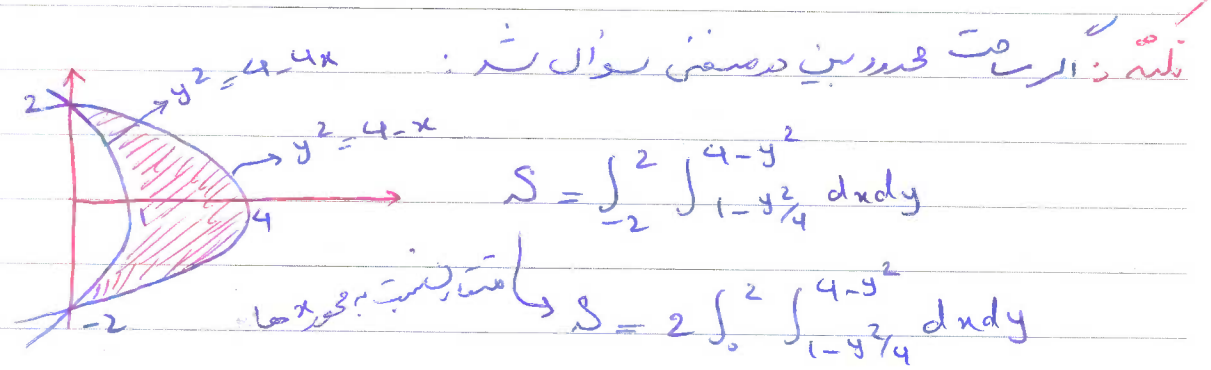 نکته: اگر مساحت محدود بین دو منحنی سؤال شد:
y² = 4-4x
2
y² = 4-x
S = ∫_{-2}^{2} ∫_{1-y²/4}^{4-y²} dxdy
1
4
متقارن نسبت به محور xها
S = 2∫_{0}^{2} ∫_{1-y²/4}^{4-y²} dxdy
-2